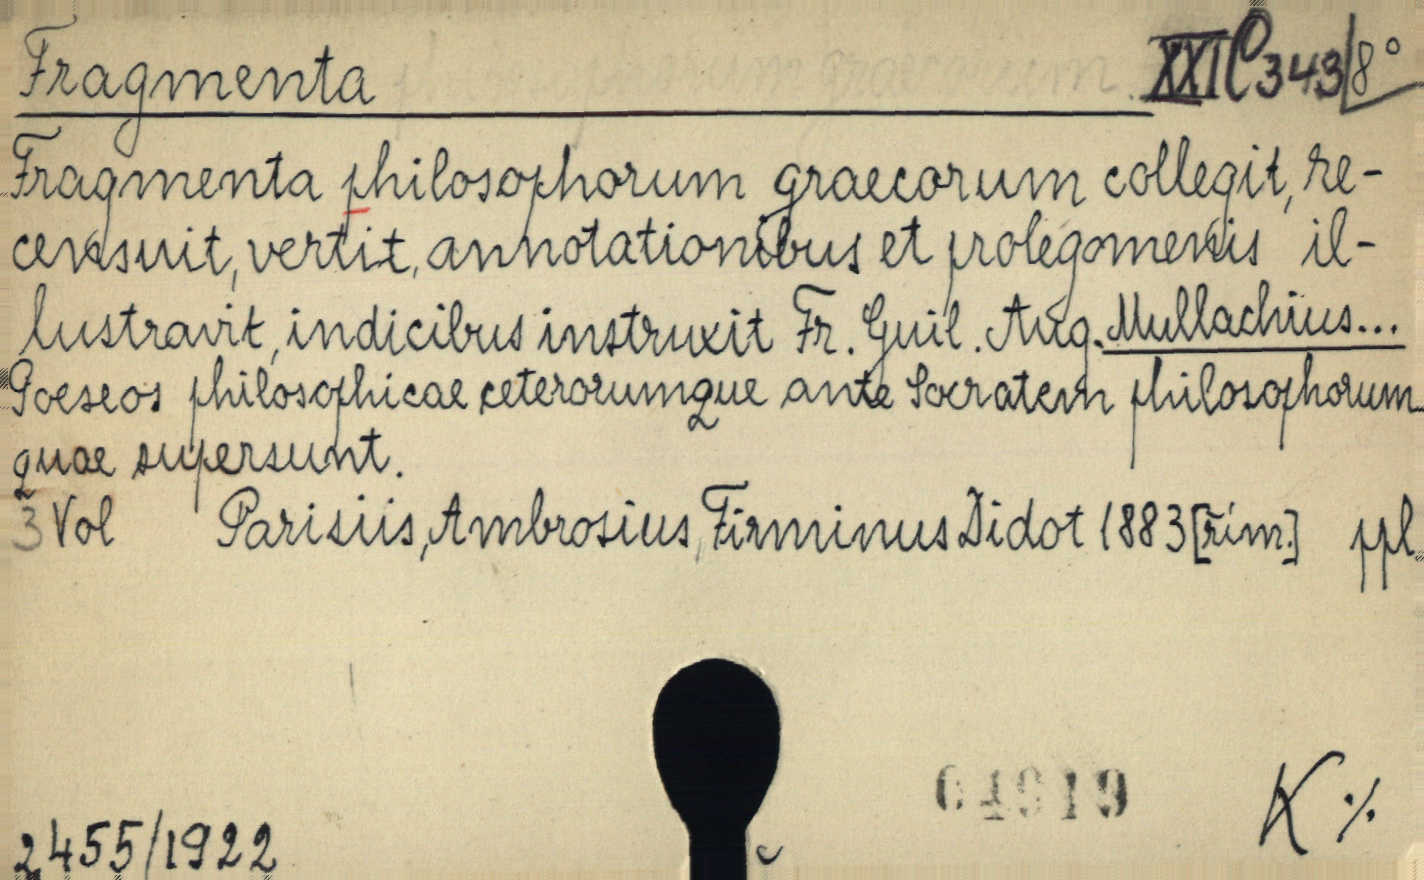 Fragmenta XXI C 343/8°
Fragmenta philosophorum graecorum collegit, re-
censuit, vertit, annotationibus et prolegomenis il-
lustravit, indicibus instruxit Fr. Guil. Aug. Mullachius...
Poeseos philosophicae ceterorumque ante Socratem philosophorum
quae supersunt.
3 Vol Parisiis, Ambrosius Firminus Didot 1883 [rím.] ppl.
K ./.
2455/1922